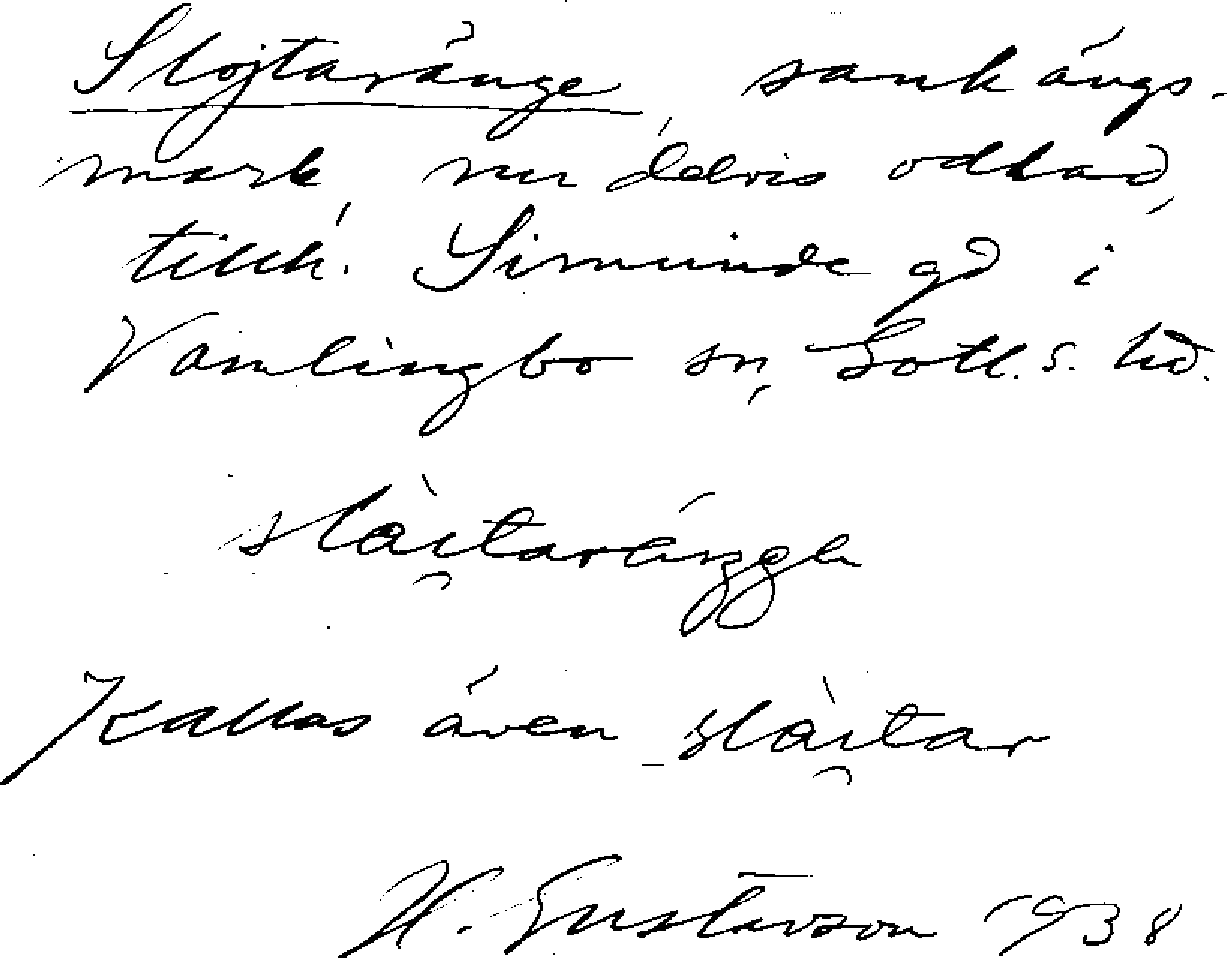 Slojtaränge, sank ängs-
mark, nu delvis odlad,
tillh. Simunde gd i
Vamlingbo sn, Gotl. s. hd.
Kallas även
H. Gustavson 1938